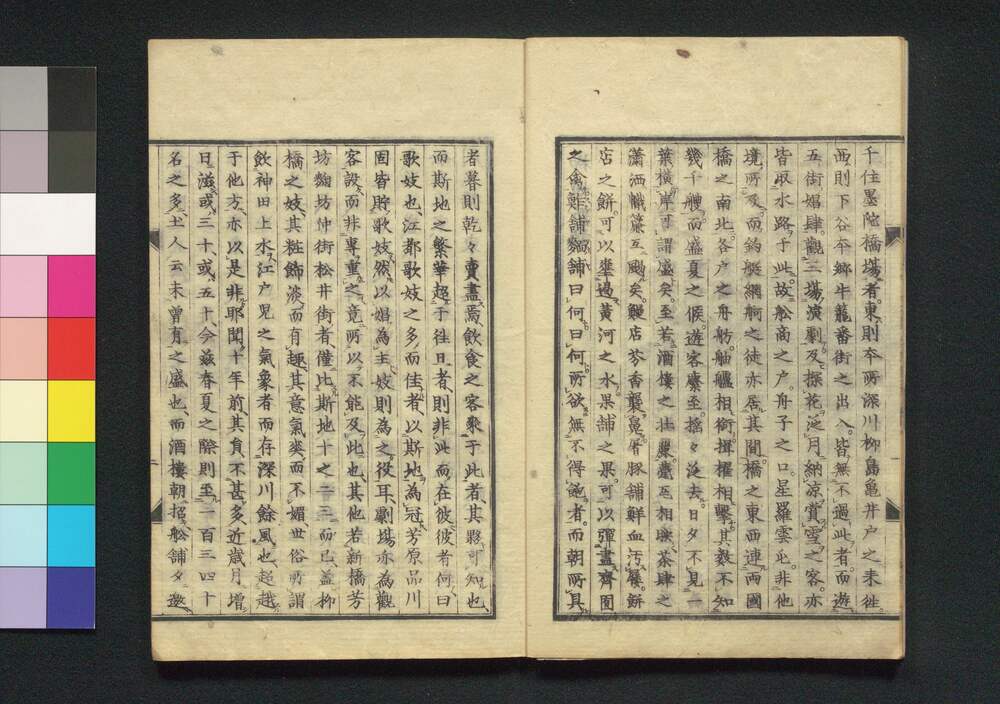 千住墨陀橋場者東則本所深川柳島亀井戸之来徃
西則下谷本郷牛籠番街之出入皆無不過此者而遊
五街娼肆觀三場演劇及探花泛月納凉賞雪之客亦
皆取水路于此故舩商之戸舟子之口星羅雲屯非他
境所及而釣艇網舸之徒亦居其間橋之東西連両國
橋之南北各戸之舟舫舳艫相銜楫櫂相擊其数不知
幾千艘而盛夏之候遊客麕至擾々泛去日夕不見一
葉橫岸可謂盛矣至若酒樓之壮麗甍互相映茶肆之
瀟洒幟簾互颺矣鰻店芬香襲鼻屠豚舗鮮血汚餅
店之餅可以壅過黄河之水果舗之果可以彈盡齊圉
之禽鮓舗麺舗曰何曰何所欲無不得飽者而朝所具
者暮則乾々賣盡焉飲食之客聚于此者其夥可知也
而斯地之繁華超于徃日者則非此而在彼彼者何曰
歌妓也江都歌妓之多而佳者以斯地為冠芳原品川
固皆貯歌妓然以娼為主妓則為之役耳劇場亦為觀
客設而非專重之竟所以不能及此也其他若新橋芳
坊麹坊仲街松井街者僅比斯地十之二三而已盖柳
橋之妓其粧飾淡而有趣其意氣爽而不媚世俗所謂
飲神田上水江戸児之氣象者而存深川餘風也超越
于他方亦以是非耶聞十年前其負不甚多近歳月增
日滋或三十或五十今茲春夏之際則至一百三四十
名之多土人云未曾有之盛也而酒樓朝招舩舗夕邀